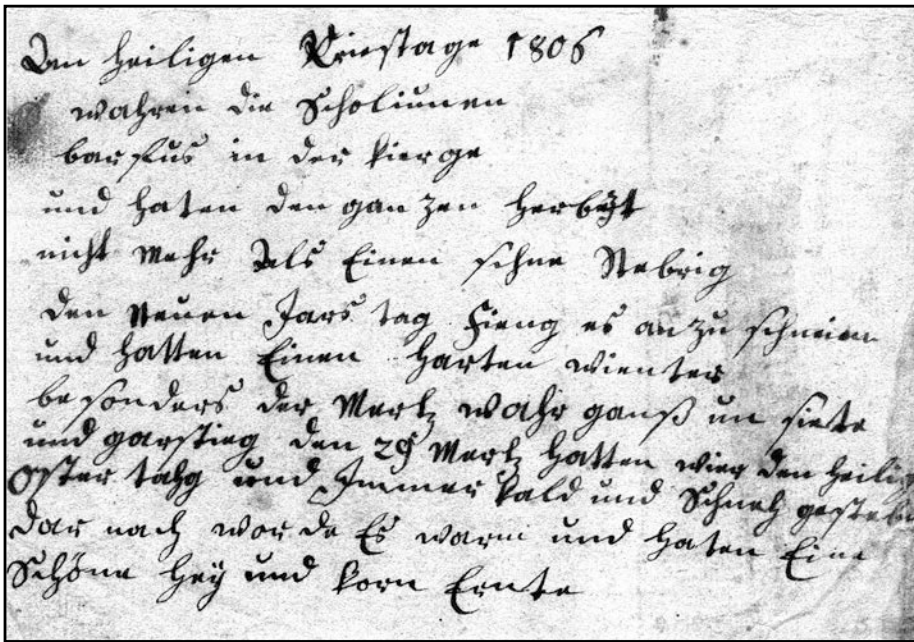 Am heiligen Kriestage 1806
wahren die Scholiunen
barfus in der kierge
und haten den ganzen herbst
nicht mehr Als Einen schne
den Neuen Jars tag Fieng es an zu schneien
und hatten Einen harten wienter
besonders der Mertz wahr ganß un siete
und garstieg den 29 Mertz hatten wier den heilig
Oster tahg und Immer kald und Schneh
dar nach worde Es warm und haten Eine
Schöne Heÿ und korn Ernte